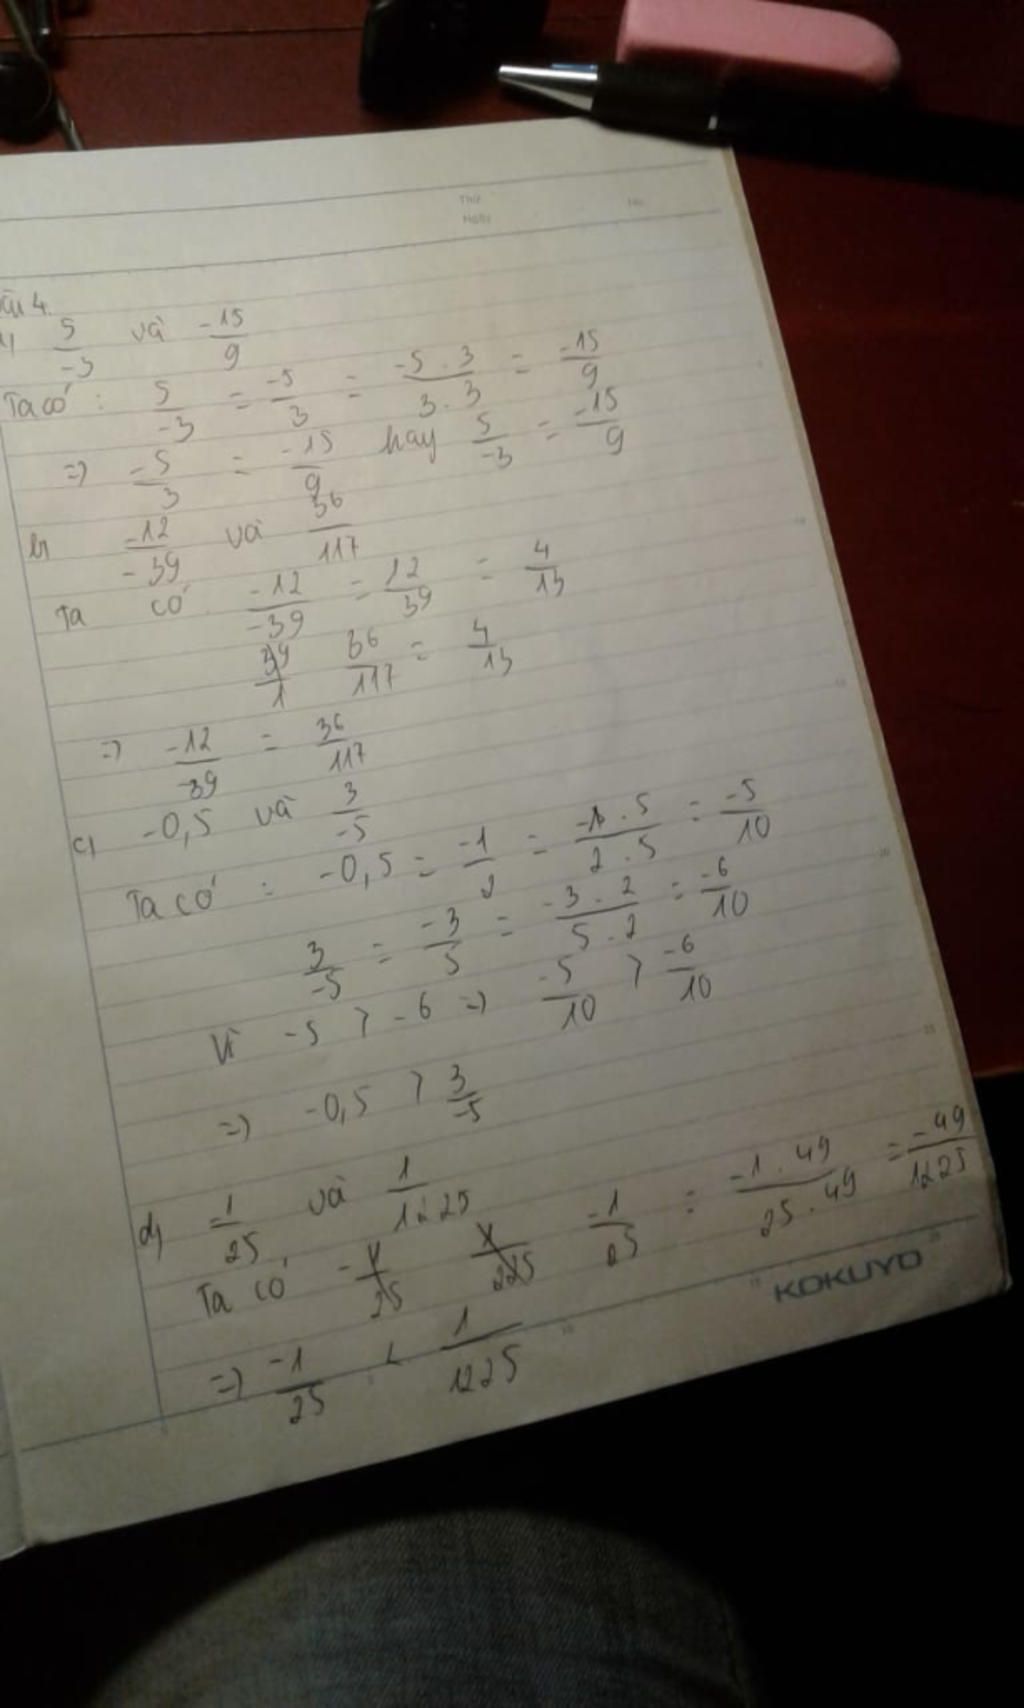 THỨ
NGÀY
No.
4.
5/-3 và -15/9
Ta có : 5/-3 = -5/3 = -5 . 3/3 . 3 = -15/9
=) -5/3 = -15/9 hay 5/-3 = -15/9
b) -12/-39 và 36/117
Ta có -12/-39 = 12/39 = 4/13
36/117 = 4/13
=) -12/-39 = 36/117
c) -0,5 và 3/-5
Ta có : -0,5 = -1/2 = -1 . 5/2 . 5 = -5/10
3/-5 = -3/5 = -3 . 2/5 . 2 = -6/10
Vì -5 > -6 =) -5/10 > -6/10
=) -0,5 > 3/-5
d) -1/25 và 1/1225
Ta có -1/25 = -1 . 49/25 . 49 = -49/1225
=) -1/25 < 1/1225
KOKUYO